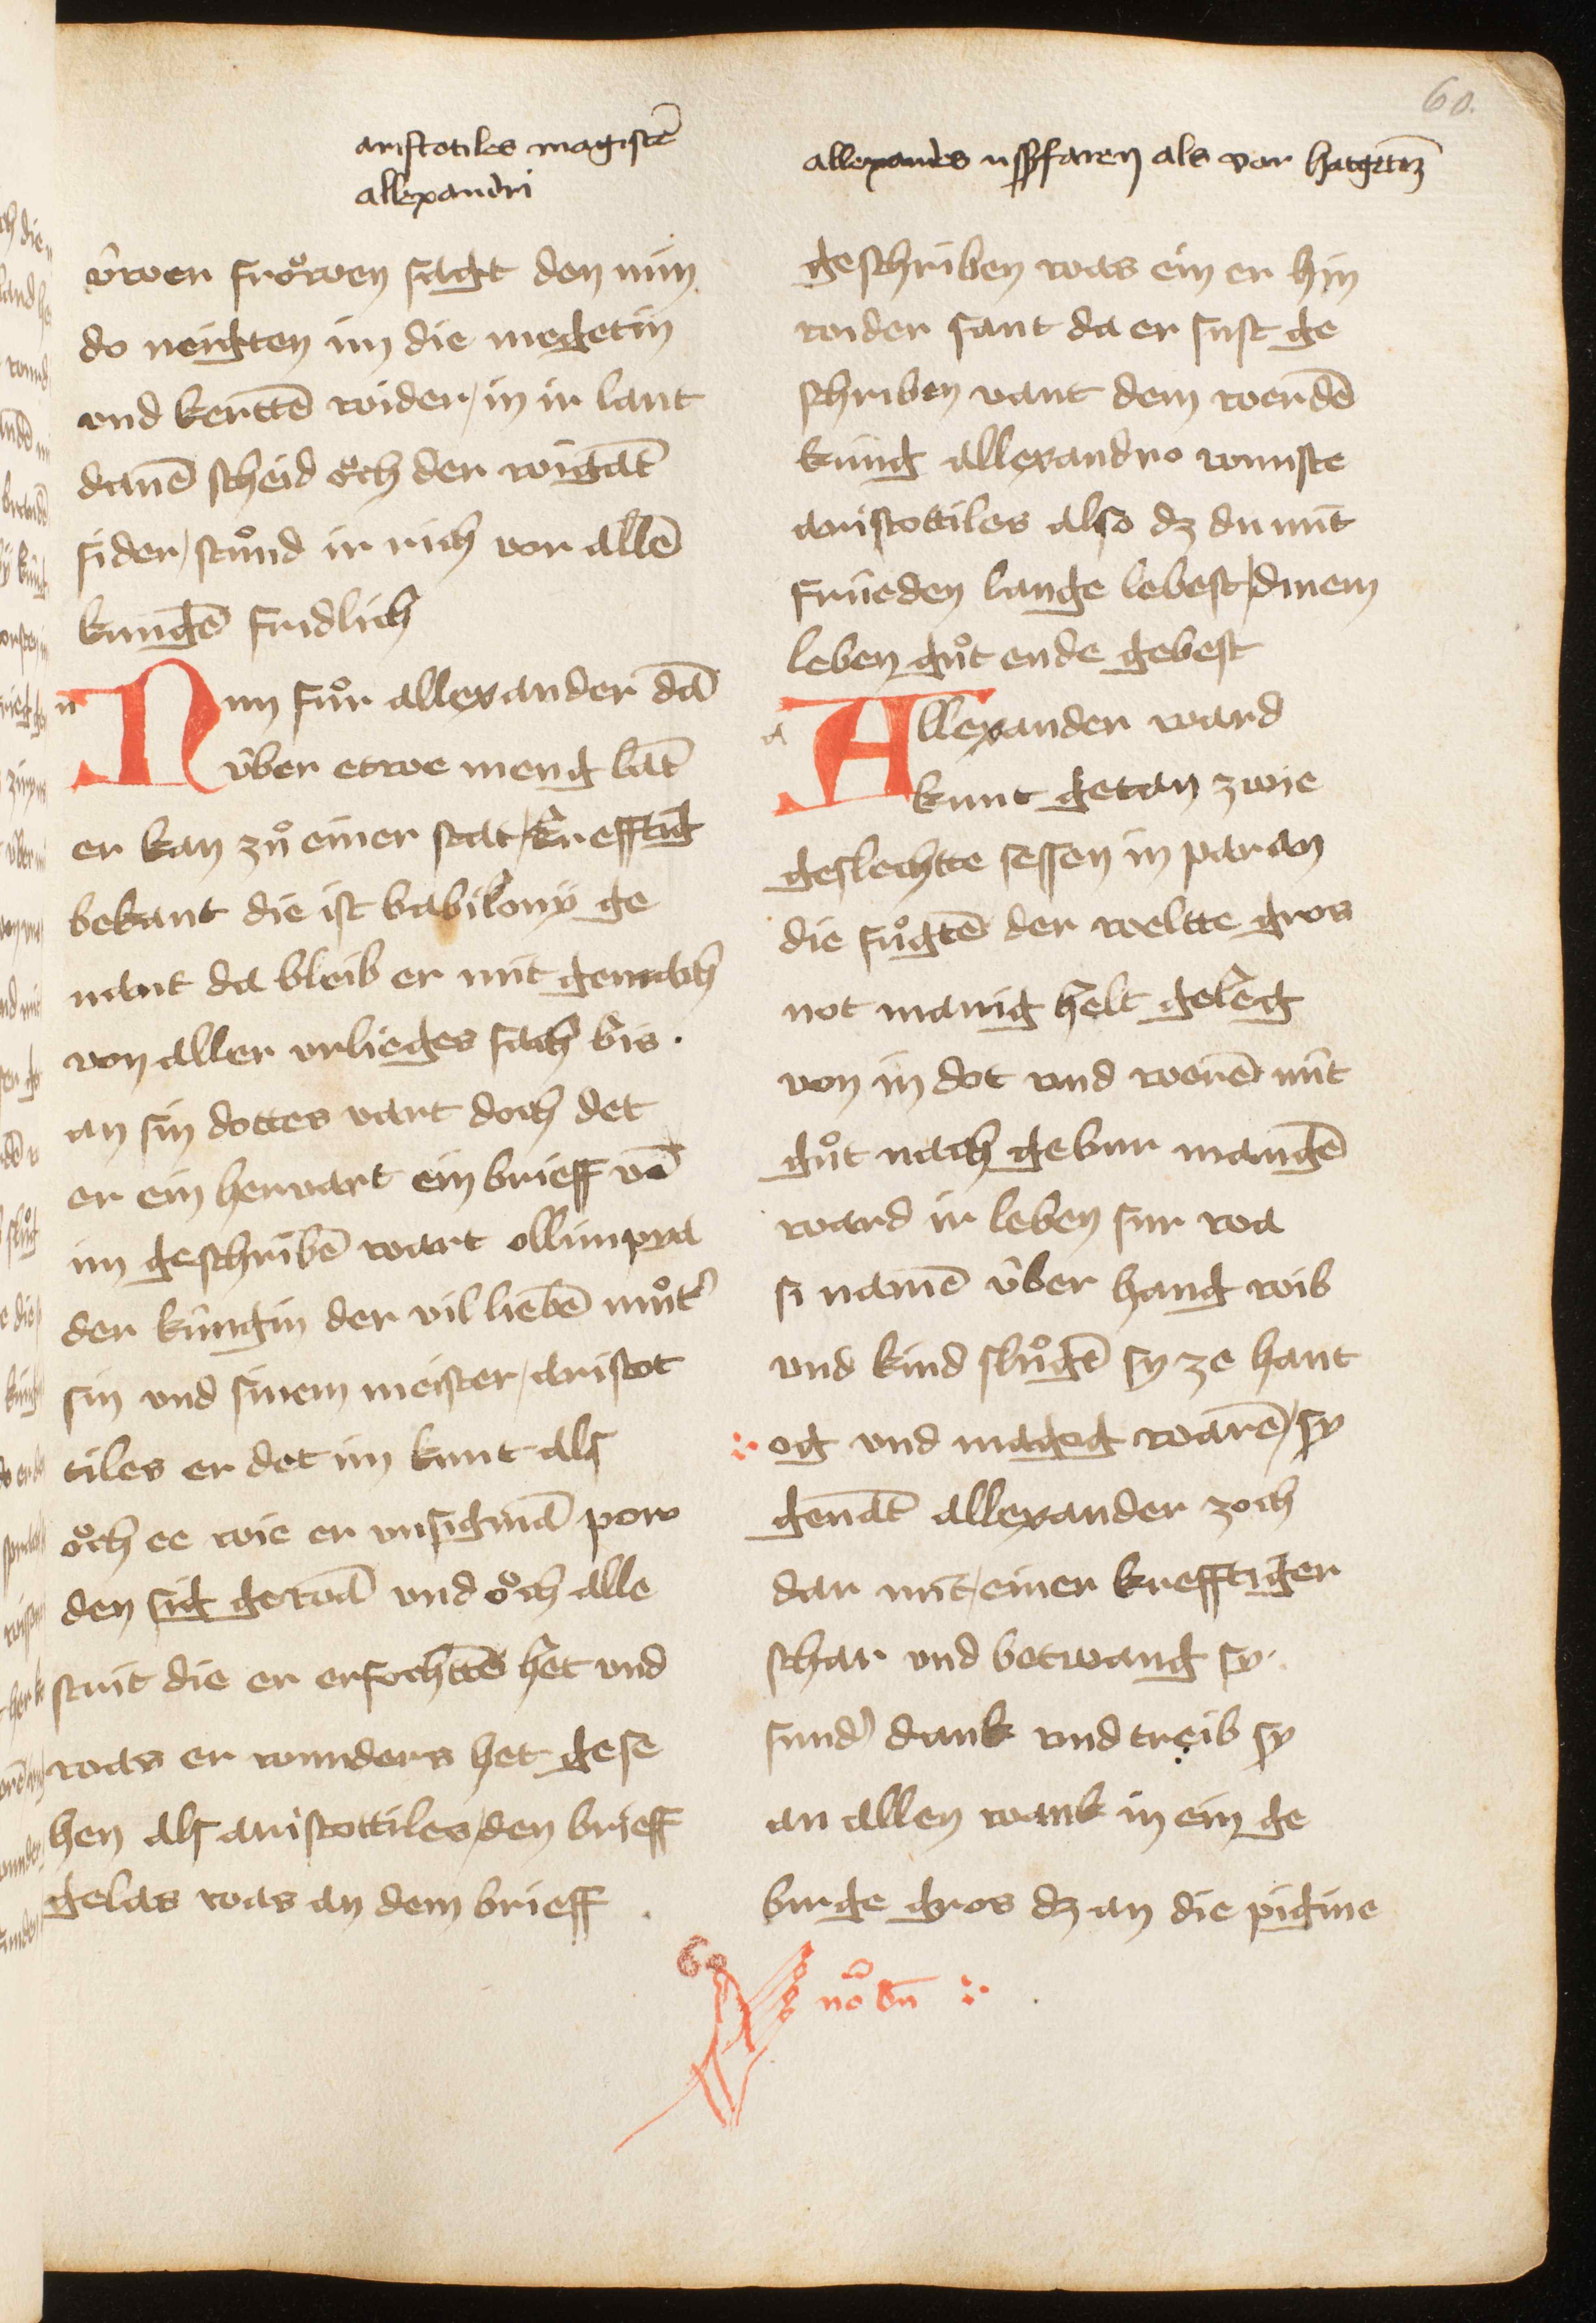 60.
aristotiles magistē
allexandri
v̂wer frowͦen sagt den min
do neigten im die megetin
vnd kerttē wider / in ir lant
danē scheid oͮch der wigāt
sider / stuͦnd ir rich vor allē
kungē fridlich
Nun fuͦr allexander dā
v̂ber etwe meng lāt
er kan zuͦ einer stat / krefftig
bekant die ist babilony ge
nant da bleib er mit gemach
von aller vrlieges sach bis.
an sin dottes vart doch det
er ein hervart ein brieff vō
im geschribē wart ollimpya
der kûngin der vil liebē muͦtʾ
sin vnd sinem meister / aristot
tiles er det im kunt als
oͮch ee wie er vnsigmā porv
den sig gewā vnd oͮch alle
strit die er erfochttē het vnd
was er wunders het gese
hen als aristottiles / den brieff
gelas was an dem brieff
allexandes vsfaren als vor
geschriben was ein er hin
wider sant da er sust ge
schriben vant dem werdē
kûng allexandro wunste
aristottiles also dz du mit
frûeden lange lebest / dinem
leben guͦt ende gebest
Allexander ward
kunt getan zwie
geslechtte sessen in paran
die fuͦgtē der weltte gros
not manig helt gelêg
von in dot vnd werē mit
guͦt nach gebur mangē
ward ir leben sur wa
si namē v̂ber hang wib
vnd kind sluͦgē sy ze hant
og vnd magog warē / sy
genāt allexander zoch
dar mit / einer krefftiger
schar vnd betwang sy
sundʾ dank vnd treib sy
an allen wank in ein ge
birge gros dz an die pigine
60